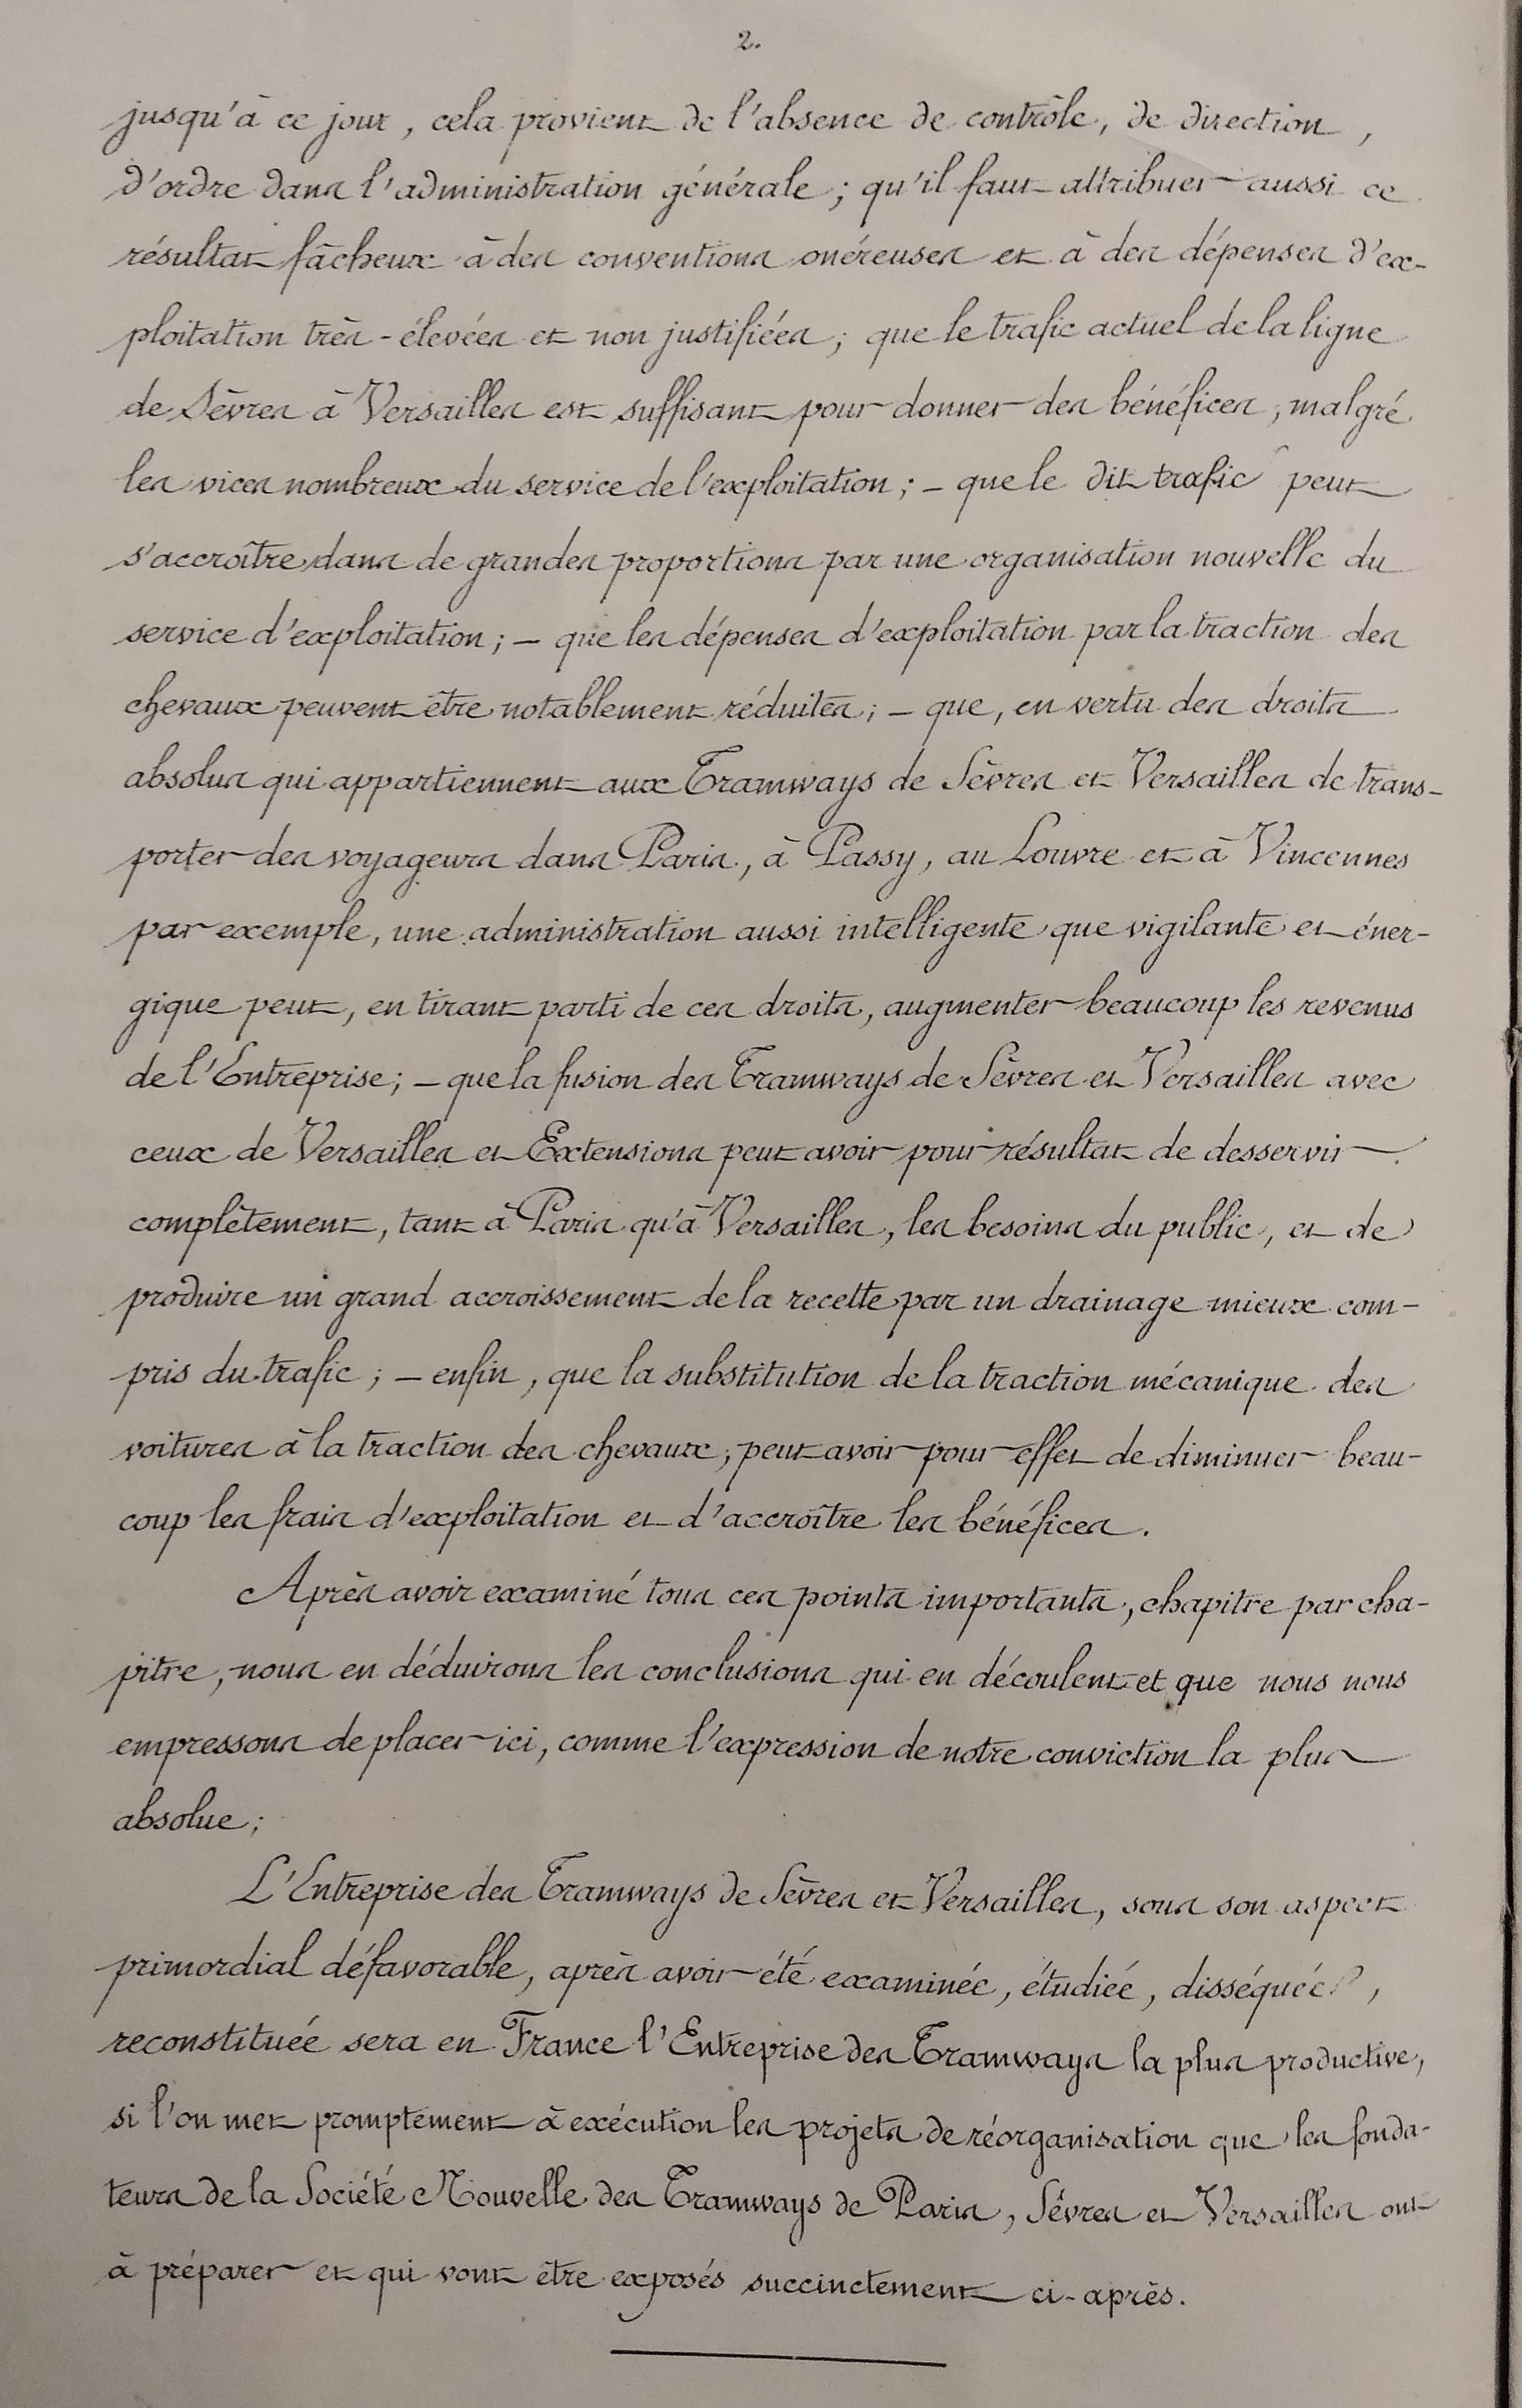 2.
jusqu'à ce jour, cela provient de l'absence de contrôle, de direction,
d'ordre dans l'administration générale; qu'il faut attribuer aussi ce
résultat fâcheux à des conventions onéreuses et à des dépenses d'ex-
ploitation très-élevées et non justifiées; que le trafic actuel de la ligne
de Sèvres à Versailles est suffisant pour donner des bénéfices, malgré
les vices nombreux du service de l'exploitation; - que le dit trafic peut
s'accroître dans de grandes proportions par une organisation nouvelle du
service d'exploitation; - que les dépenses d'exploitation par la traction des
chevaux peuvent être notablement réduites; - que, en vertu des droits
absolus qui appartiennent aux Tramways de Sèvres et Versailles de trans-
porter des voyageurs dans Paris, à Passy, au Louvre et à Vincennes
par exemple, une administration aussi intelligente que vigilante et éner-
gique peut, en tirant parti de ces droits, augmenter beaucoup les revenus
de l'Entreprise; - que la fusion des Tramways de Sèvres et Versailles avec
ceux de Versailles et Extensions peut avoir pour résultat de desservir
complètement, tant à Paris qu'à Versailles, les besoins du public, et de
produire un grand accroissement de la recette par un drainage mieux com-
pris du trafic; - enfin, que la substitution de la traction mécanique des
voitures à la traction des chevaux, peut avoir pour effet de diminuer beau-
coup les frais d'exploitation et d'accroître les bénéfices.
Après avoir examiné tous ces points importants, chapitre par cha-
pitre, nous en déduirons les conclusions qui en découlent et que nous nous
empressons de placer ici, comme l'expression de notre conviction la plus
absolue;
L'Entreprise des Tramways de Sèvres et Versailles, sous son aspect
primordial défavorable, après avoir été examinée, étudiée, disséquée,
reconstituée sera en France l'Entreprise des Tramways la plus productive,
si l'on met promptement à exécution les projets de réorganisation que les fonda-
teurs de la Société Nouvelle des Tramways de Paris, Sèvres et Versailles ont
à préparer et qui vont être exposés succinctement ci-après.